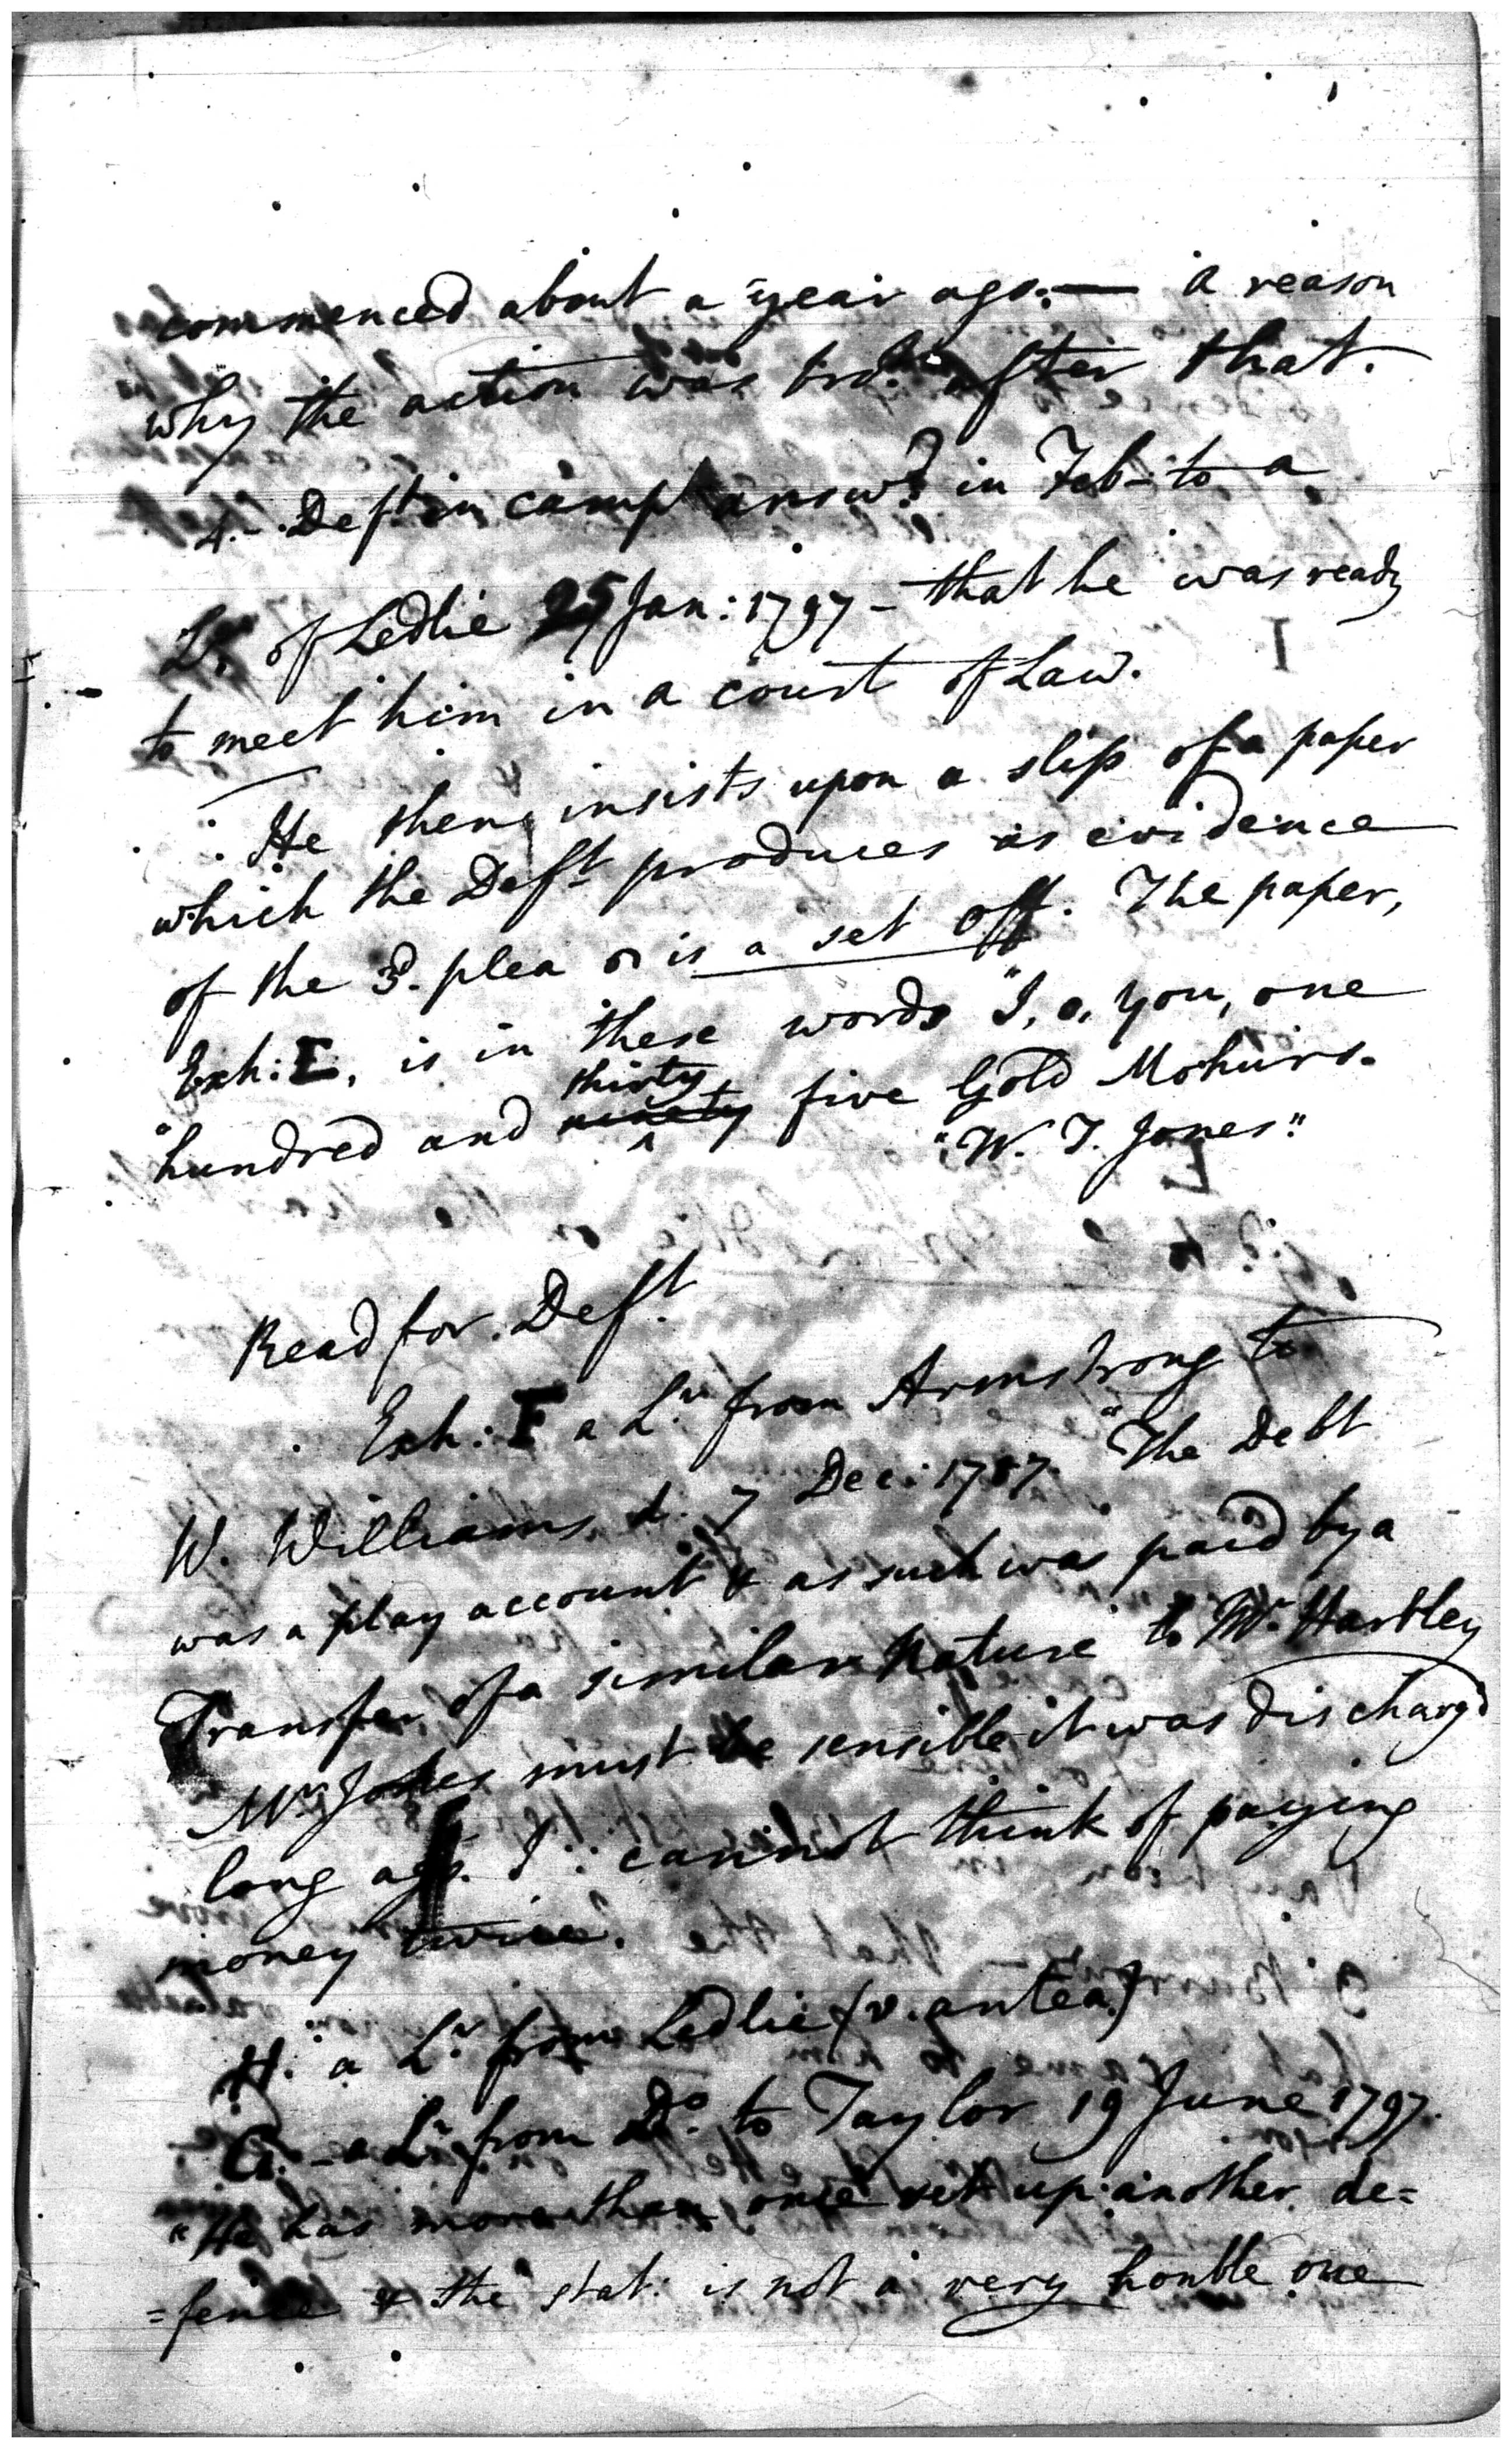 commenced about a year ago; — a reason
why the action was bro.t after that.
4. - Deft in camp answd. in Feb - to a
Lr. of Ledlie 25 Jan: 1797 - that he was ready
to meet him in a court of Law.
He then insists upon a slip of a paper
which the Deft. produces as evidence
of the 3d. plea or is a set off. The paper,
Exh: E, is in these words "I, o, you, one
"hundred and ninety thirty five Gold Mohurs.
"W. T. Jones"
Read for Deft.
Exh: F a Lr. from Armstrong to
W. Williams, d. 7 Dec: 1787. "The Debt
was a play account & as such was paid by a
Transfer of a similar Nature to Mr. Hartley
Mr. Jones must be sensible it was discharg'd
long ago. I ∴ cannot think of paying
money twice.
H. a Lr. from Ledlie (v. antea)
G. - a Lr. from Do. to Taylor 19 June 1797.
"He has more than once set up another de=
=fence & the stat: is not a very honble one